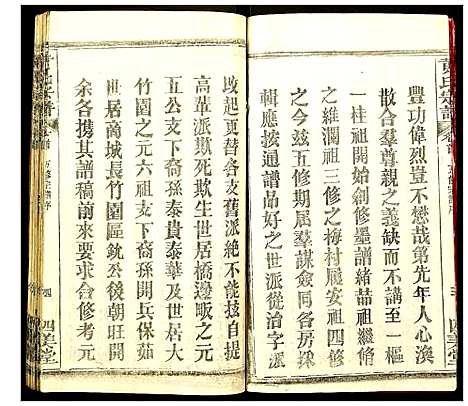 豐功偉烈豈不懋哉第先年人心渙
散合羣尊親之義缺而不講至一樞
一桂祖開始創修墨譜緒喆祖二修
之維瀾祖三修之梅村履安祖四修
之今茲五修期屆羣謀僉同各房採
輯應按通譜吊好之世派從治字派
起更替各支舊派絶不能談自提
高輩派欺死欺生世居橋邊畈之元
五公六子孫泰貴泰華及世居
竹園之元六祖支下裔孫開兵保茹
世居商城長竹園區銃公後朝旺開
余各攜其譜稿前來要求合修考元
四美堂
黄氏宗譜
四美堂